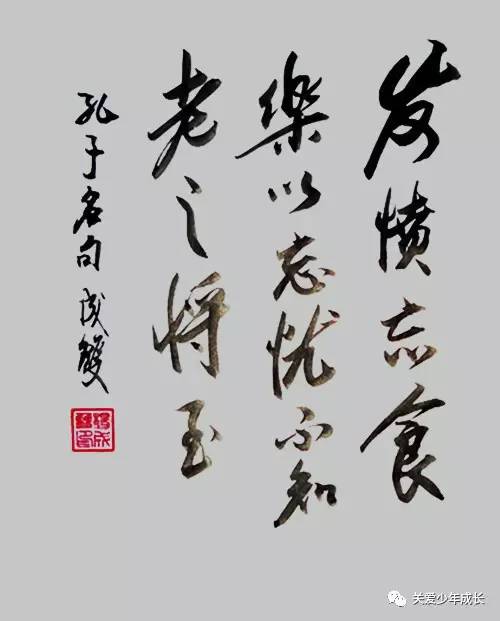 发愤忘食
樂以忘忧不知
老之将至
孔子名句 成雙
关爱少年成长